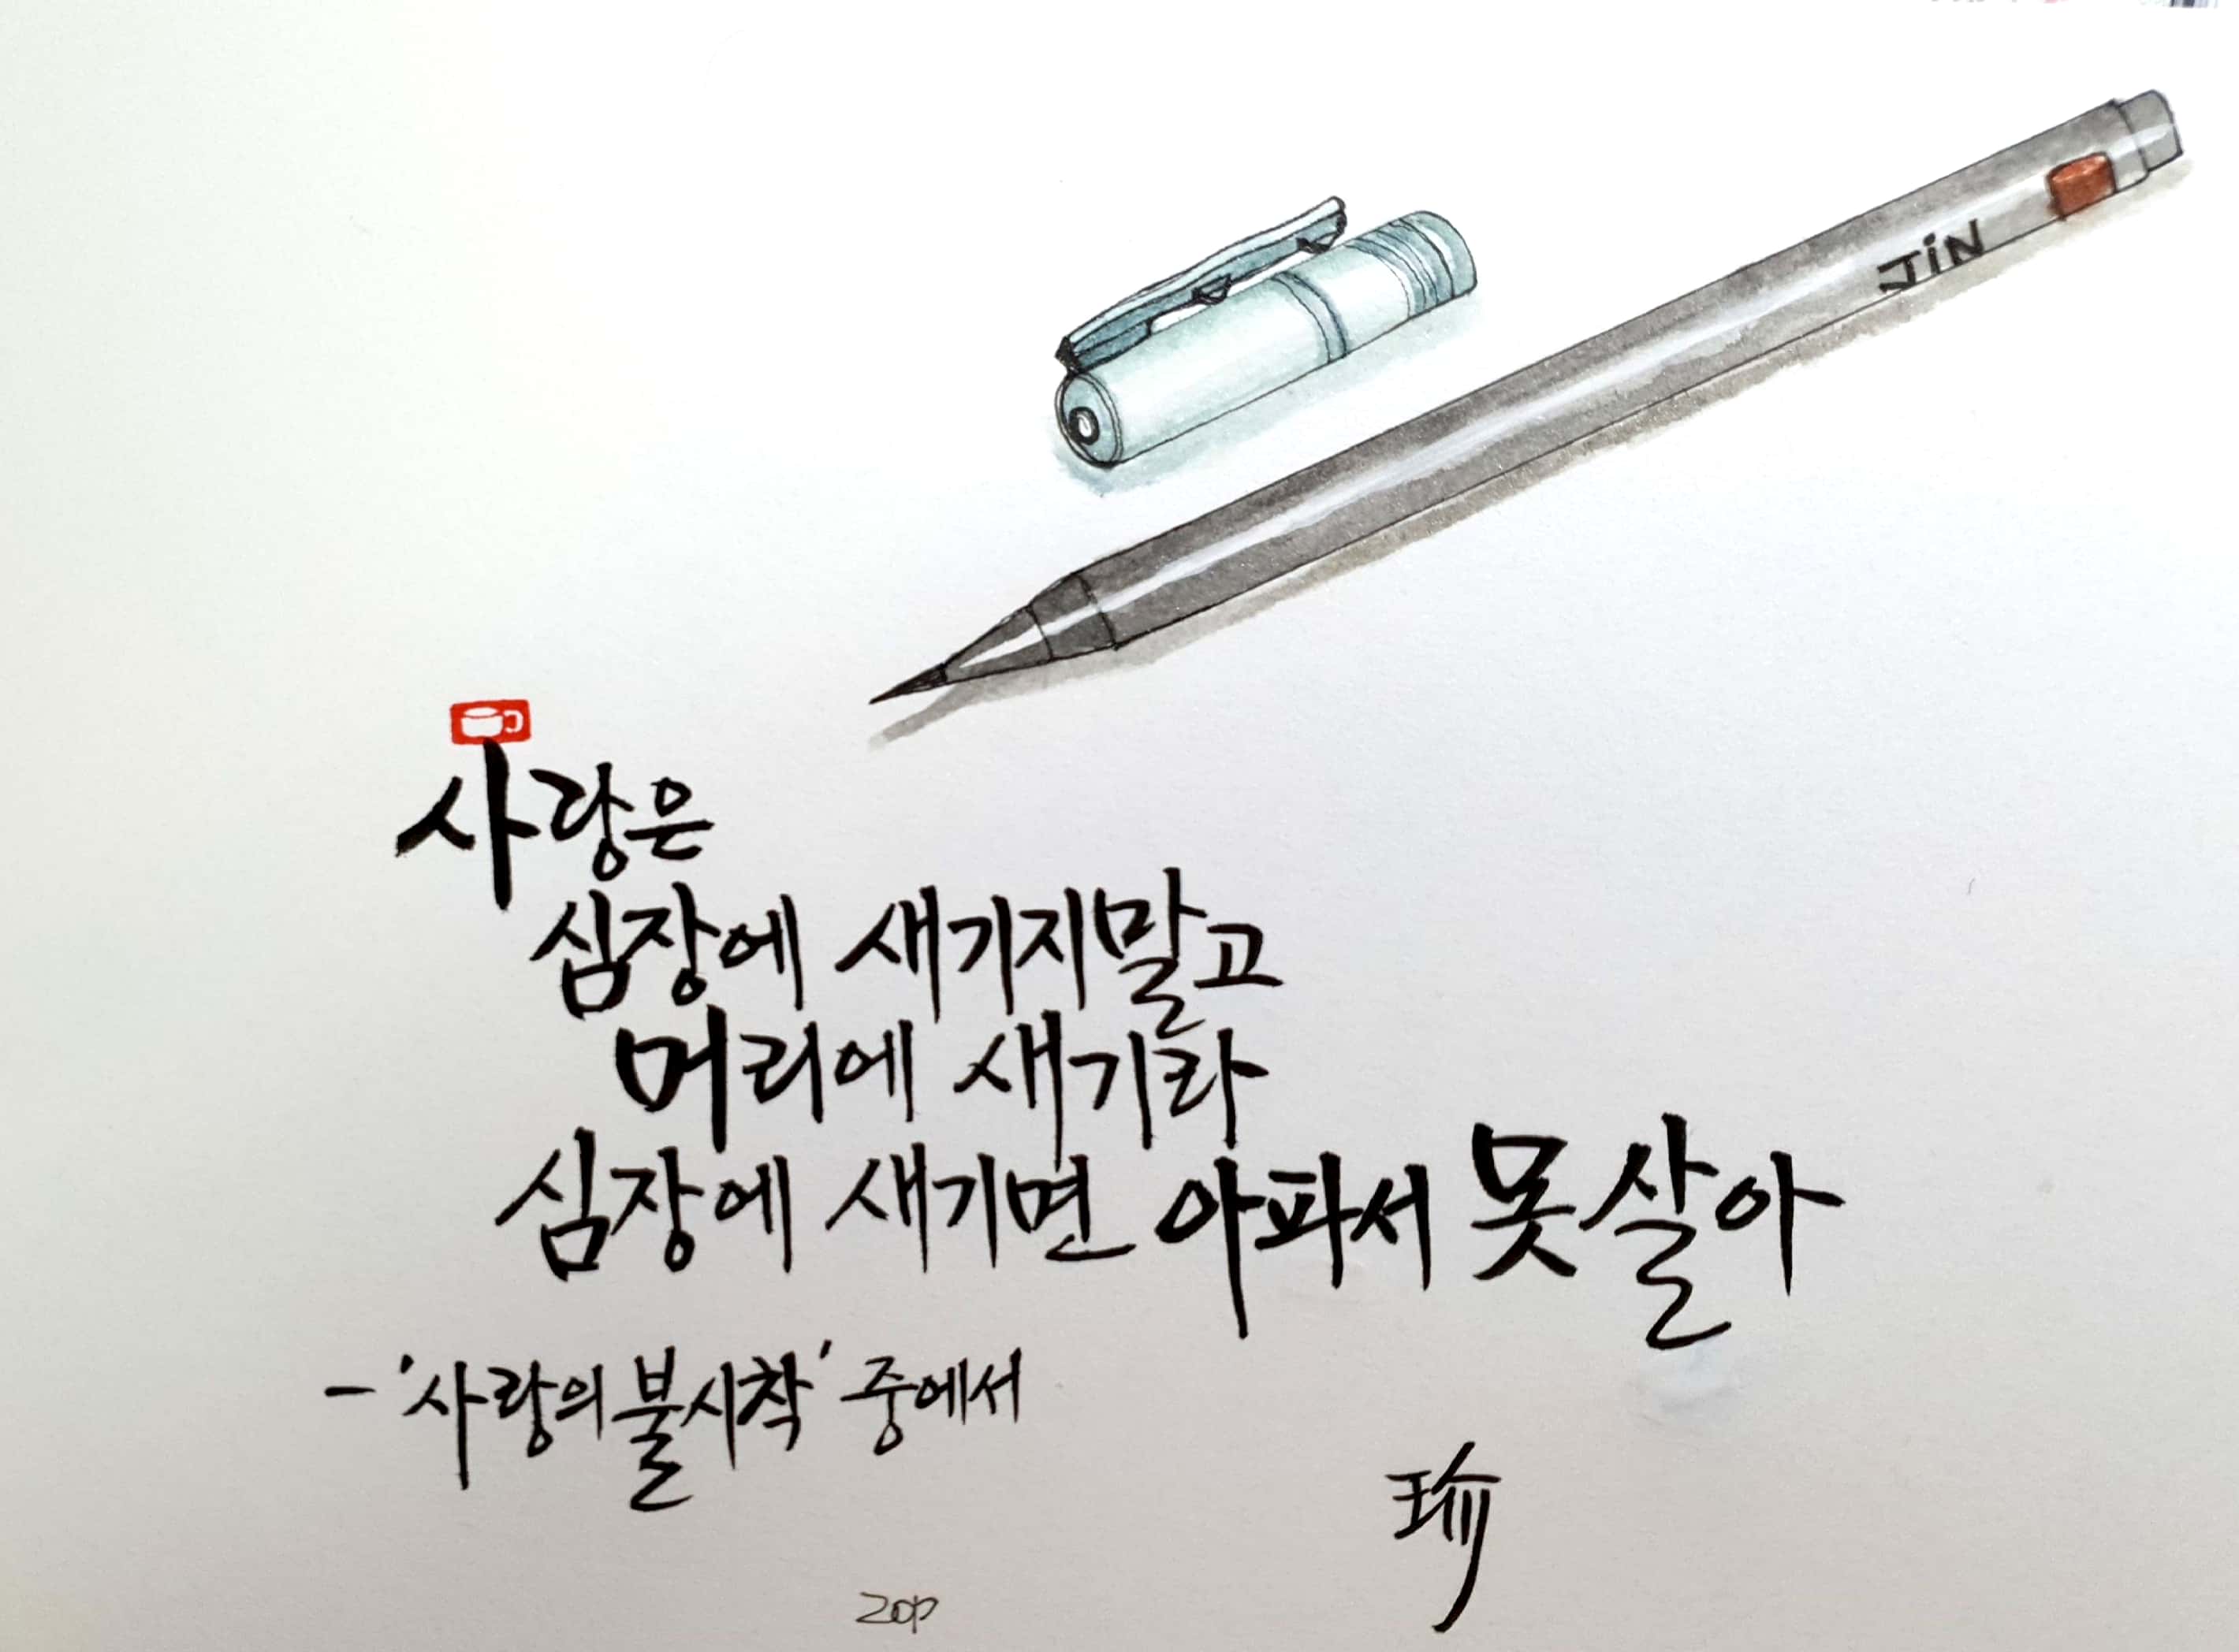 JiN
사랑은
심장에 새기지말고
머리에 새기라
심장에 새기면 아파서 못살아
- '사랑의 불시착' 중에서